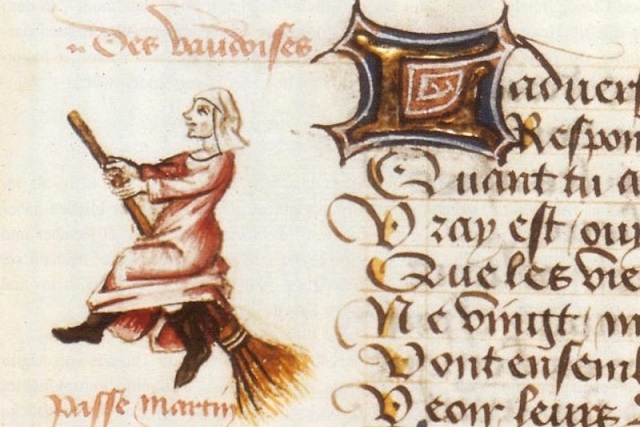 Des vaudoises
passe martin
L aduers
Respon
Quant tu a
Vray est / ouy
Que les vie
Ne vingt / m
Vont ensem
Veoir leurs